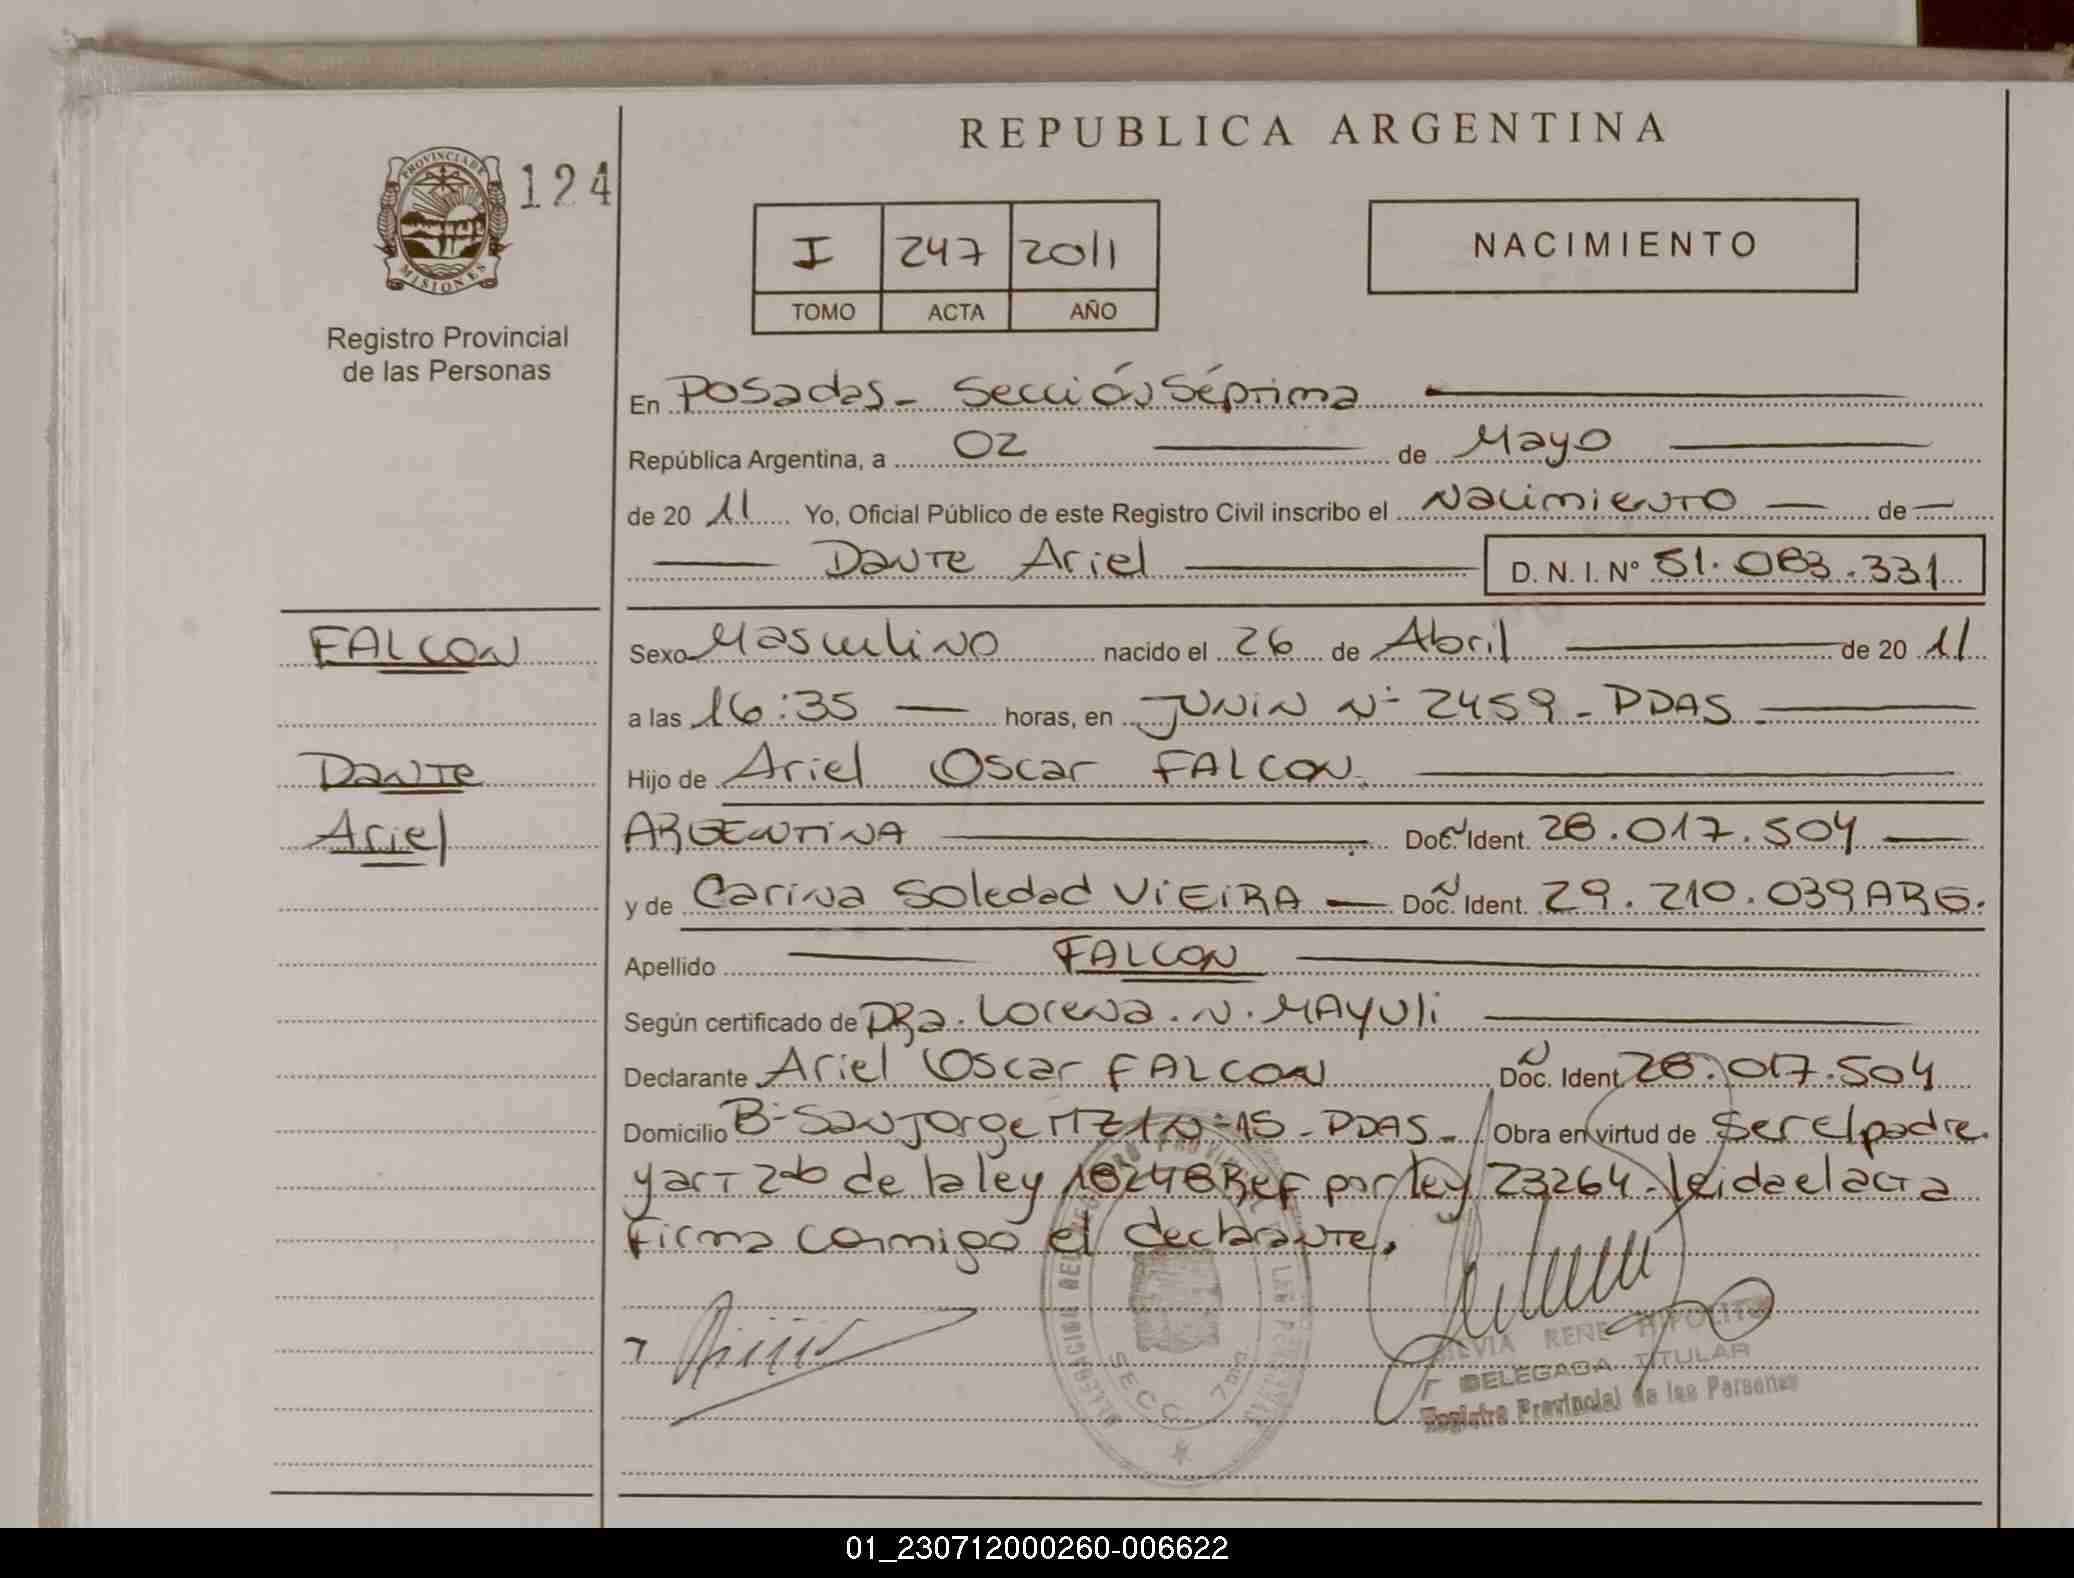 REPUBLICA ARGENTINA
PROVINCIA DE
MISIONES
124
Registro Provincial
de las Personas
I 247 2011
TOMO ACTA AÑO
NACIMIENTO
En Posadas - Sección Séptima
República Argentina, a 02 de Mayo
de 20 11 Yo, Oficial Público de este Registro Civil inscribo el Nacimiento de
Dante Ariel D. N. I. Nº 51.083.331
FALCON
Dante
Ariel
Sexo Masculino nacido el 26 de Abril de 20 11
a las 16:35 horas, en JUNIN Nº 2459 - PDAS
Hijo de Ariel Oscar FALCON
ARGENTINA Doc. Ident. 28.017.504
y de Carina Soledad VIEIRA Doc. Ident. 29.210.039 ARG.
Apellido FALCON
Según certificado de DRa. Lorena. N. MAYULI
Declarante Ariel Oscar FALCON Doc. Ident. 28.017.504
Domicilio Bº San Jorge MZ 1 Nº 15 - PDAS - Obra en virtud de Ser el padre
y art 2do de la ley 18248 Ref por ley 23264. leida el acta
firma conmigo el declarante.
SECC. 7ma
SILVIA RENE HIPOLITO
DELEGADA TITULAR
Registro Provincial de las Personas
01_230712000260-006622